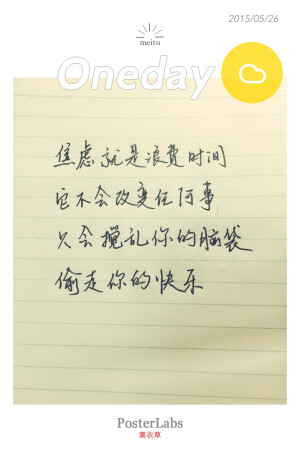 2015/05/26
meitu
Oneday
焦虑就是浪费时间
它不会改变任何事
只会搅乱你的脑袋
偷走你的快乐
PosterLabs
薰衣草